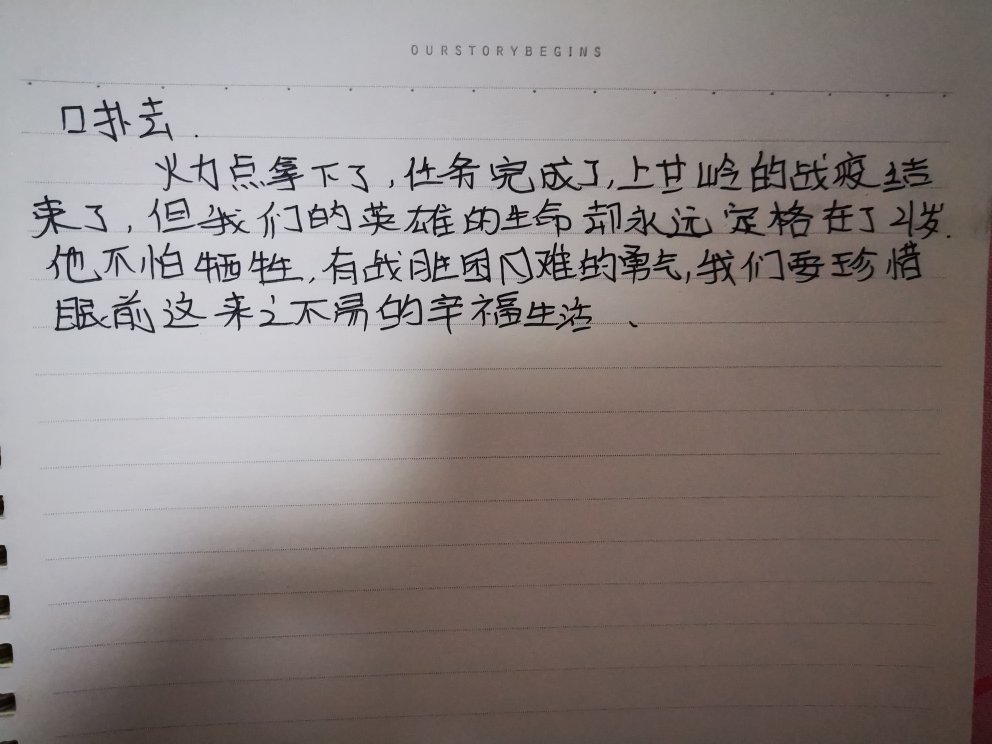 OURSTORYBEGINS
口扑去.
火力点拿下了,任务完成了,上甘岭的战疫结
束了,但我们的英雄的生命却永远定格在了21岁.
他不怕牺牲,有战胜困难的勇气,我们要珍惜
眼前这来之不易的幸福生活、